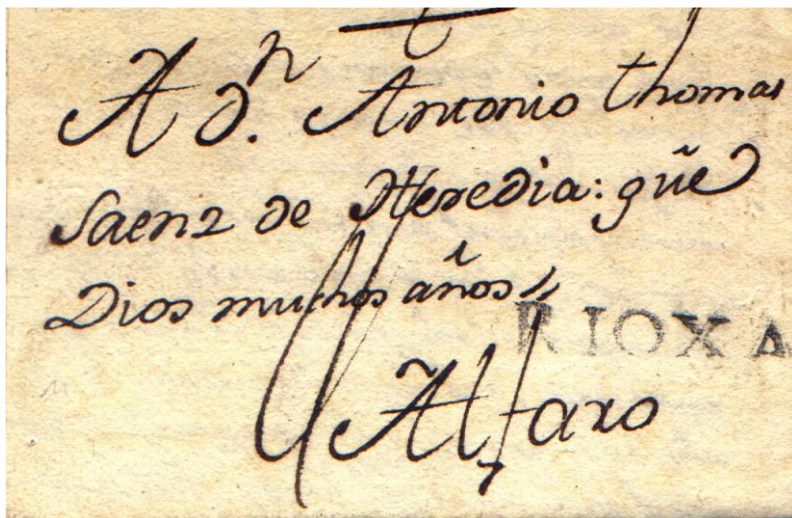 A Dn. Antonio Thomas
Saenz de Heredia: gũe
Dios muchos años
RIOXA
Alfaro